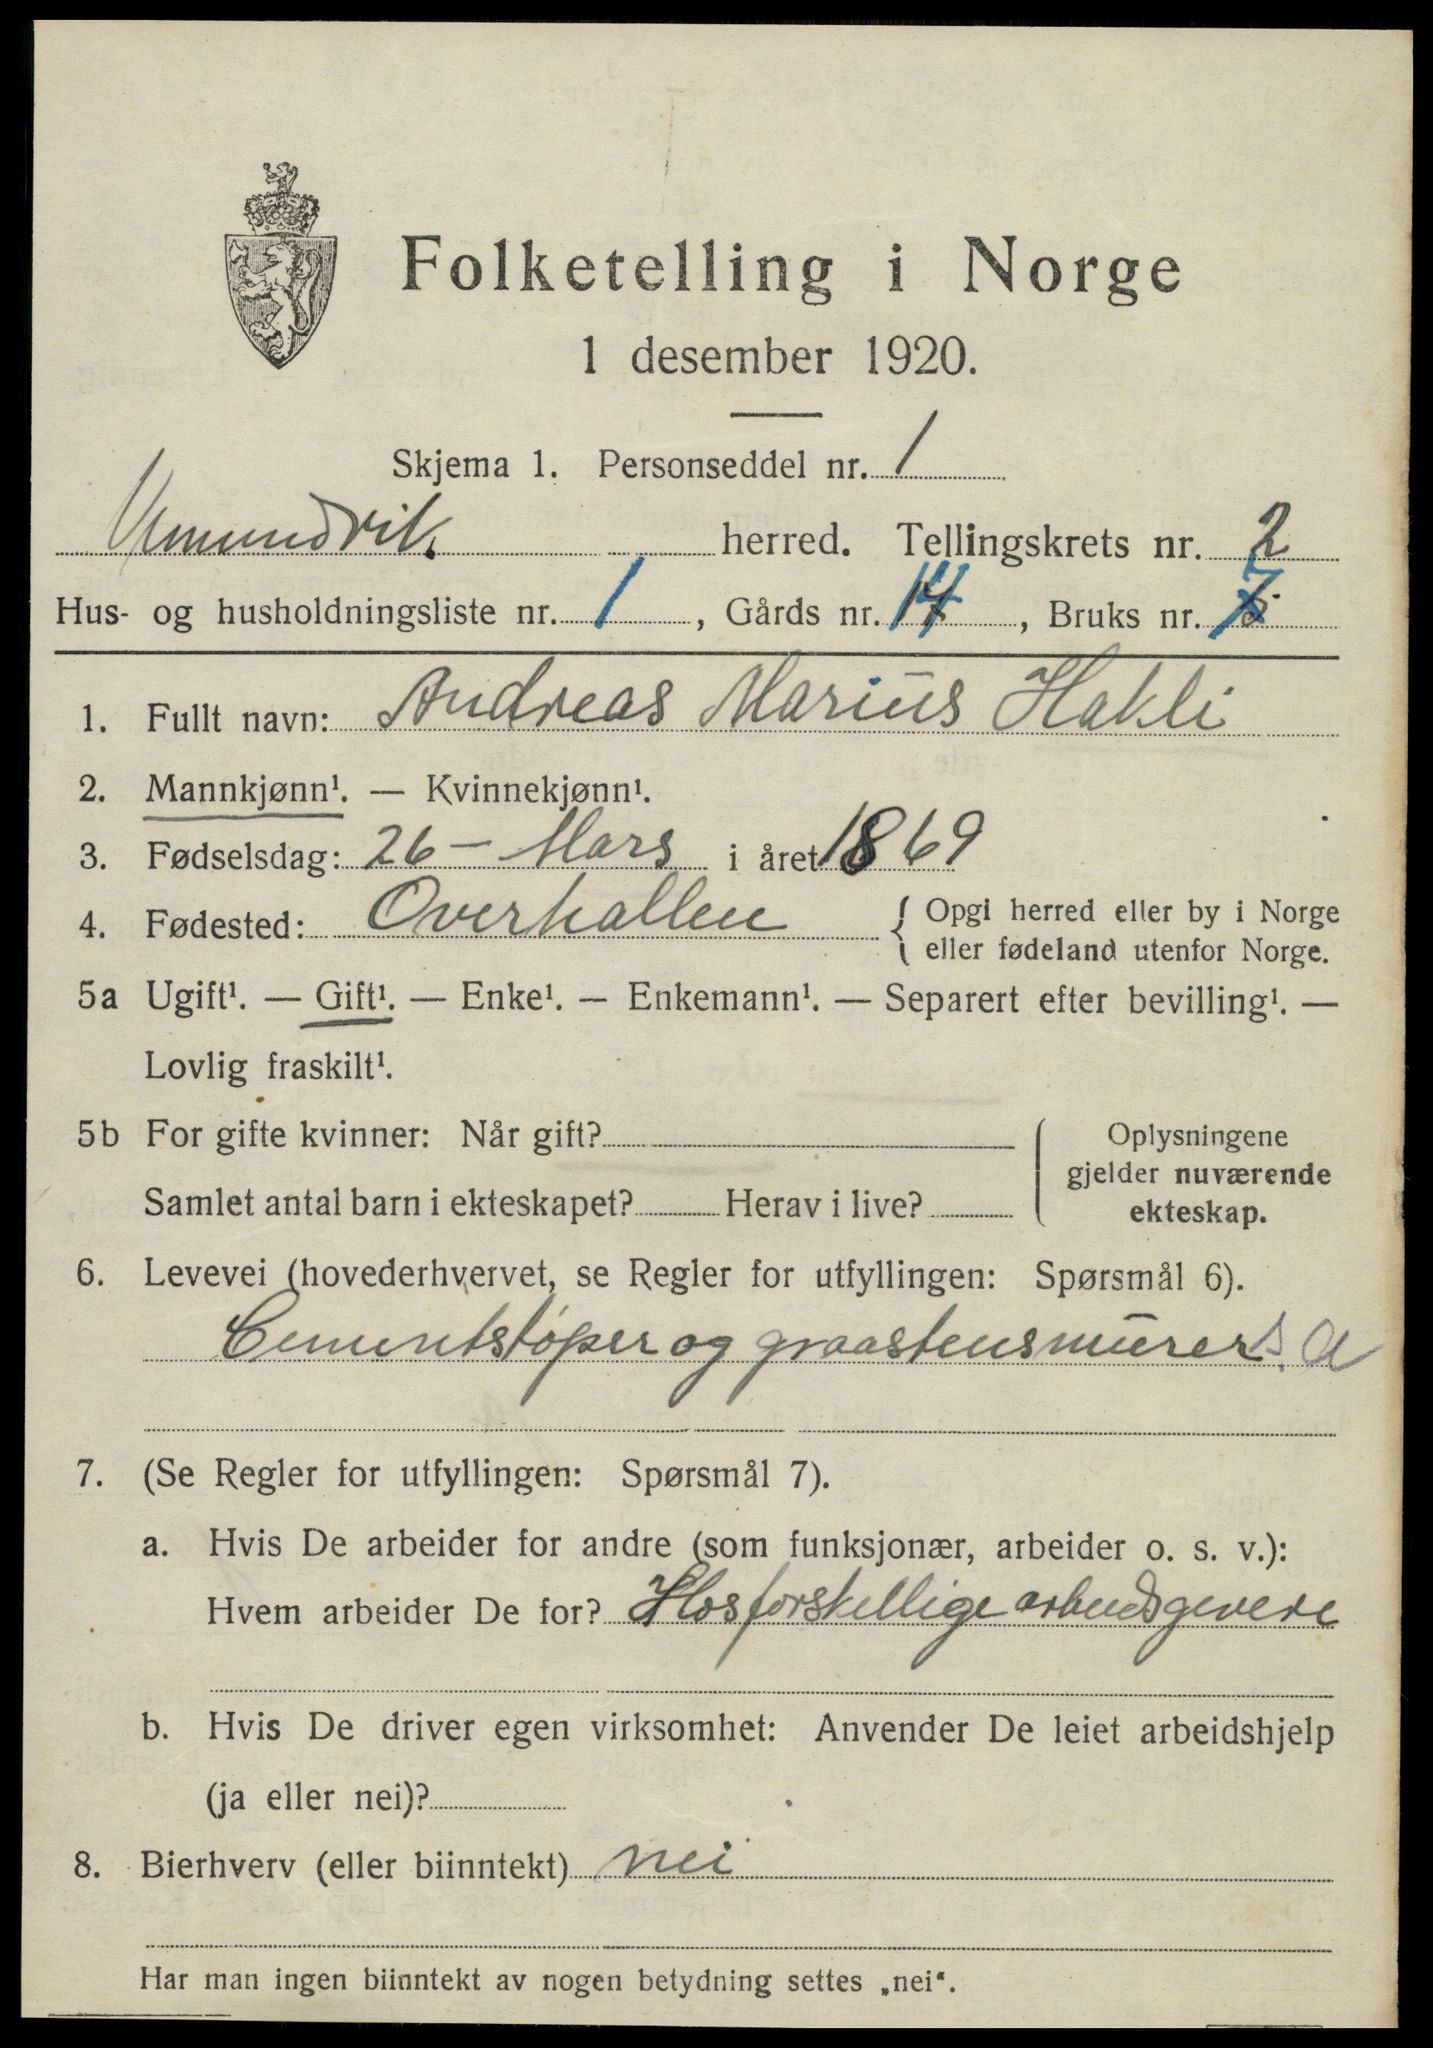 Folketelling i Norge
1 desember 1920.
Skjema 1. Personseddel nr. 1
Vemundvik herred. Tellingskrets nr. 2
Hus- og husholdningsliste nr. 1, Gårds nr. 14, Bruks nr. 7
1. Fullt navn: Andreas Marius Hakli
2. Mannkjønn¹. — Kvinnekjønn¹.
3. Fødselsdag: 26 – Mars i året 1869
4. Fødested: Overhallen { Opgi herred eller by i Norge
eller fødeland utenfor Norge.
5a Ugift¹. — Gift¹. — Enke¹. — Enkemann¹. — Separert efter bevilling¹. —
Lovlig fraskilt¹.
5b For gifte kvinner: Når gift?
Samlet antal barn i ekteskapet? Herav i live?
Oplysningene
gjelder nuværende
ekteskap.
6. Levevei (hovederhvervet, se Regler for utfyllingen: Spørsmål 6).
Cementstøper og graastensmurer s. a
7. (Se Regler for utfyllingen: Spørsmål 7).
a. Hvis De arbeider for andre (som funksjonær, arbeider o. s. v.):
Hvem arbeider De for? Hos forskellige arbeidsgevere
b. Hvis De driver egen virksomhet: Anvender De leiet arbeidshjelp
(ja eller nei)?
8. Bierhverv (eller biinntekt) nei
Har man ingen biinntekt av nogen betydning settes „nei“.